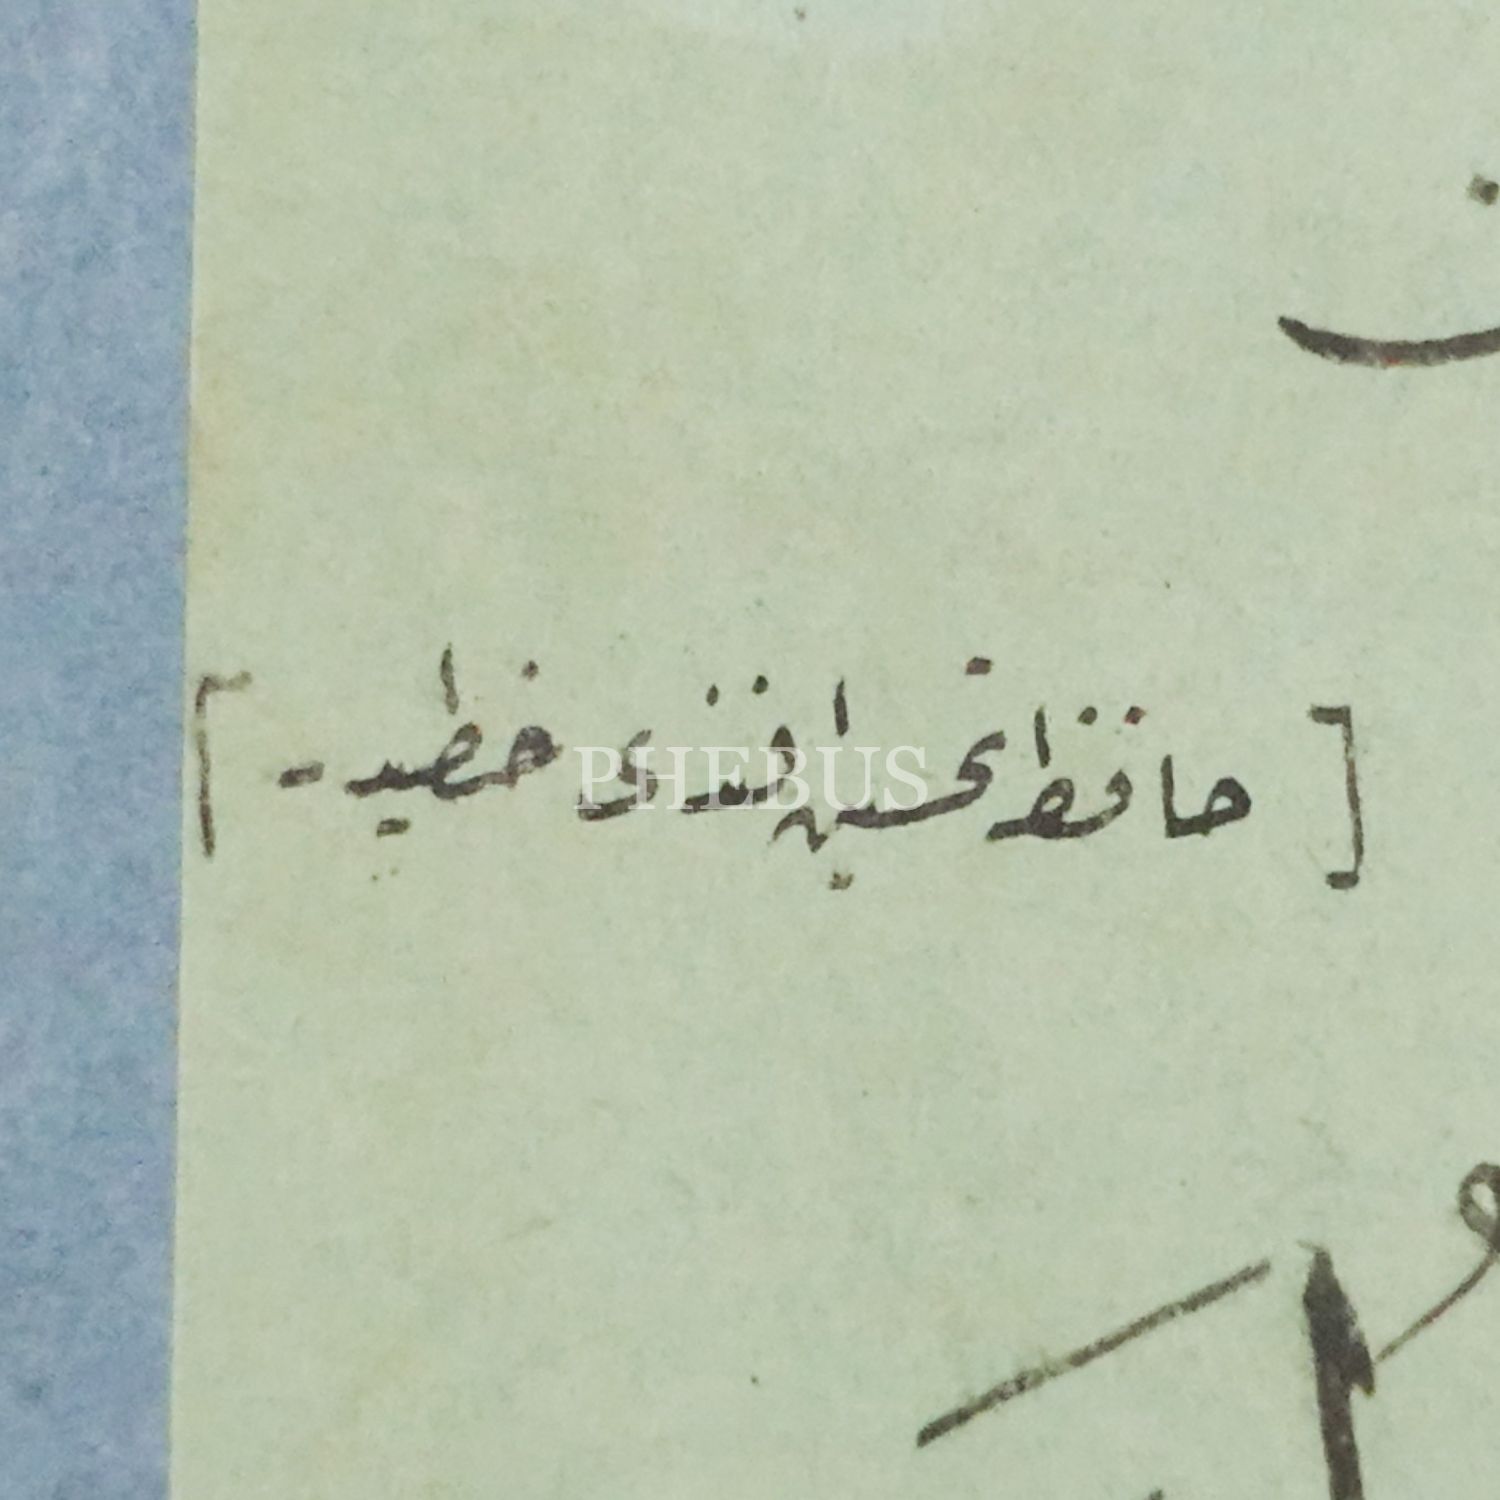 [حافظ تحسین افندی خطیدر]
PHEBUS